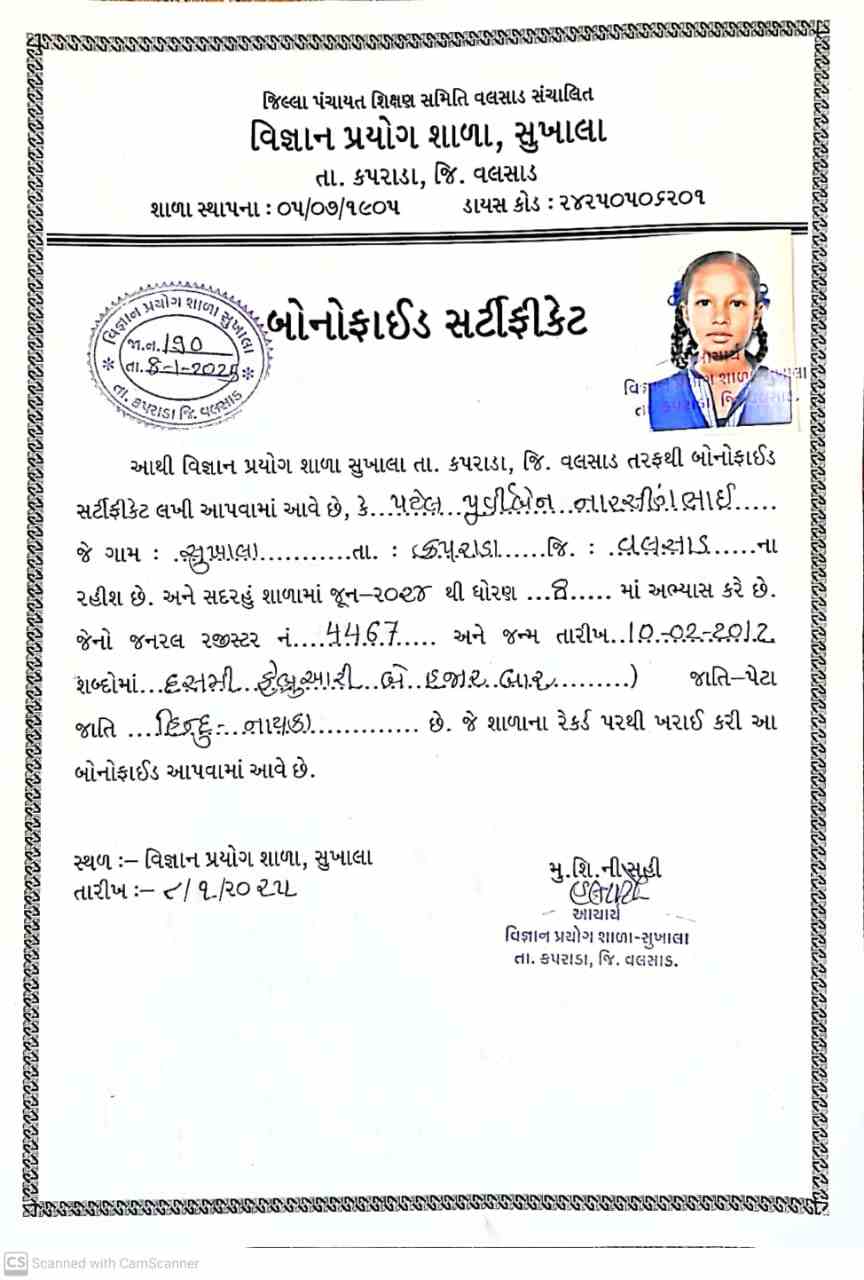 જિલ્લા પંચાયત શિક્ષણ સમિતિ વલસાડ સંચાલિત
વિજ્ઞાન પ્રયોગ શાળા, સુખાલા
તા. કપરાડા, જિ. વલસાડ
શાળા સ્થાપના : ૦૫/૦૭/૧૯૦૫ ડાયસ કોડ : ૨૪૨૫૦૫૦૬૨૦૧
વિજ્ઞાન પ્રયોગ શાળા સુખાલા
જા.ન. 190
તા. 8-1-2025
તા. કપરાડા જિ. વલસાડ
બોનોફાઈડ સર્ટીફીકેટ
આચાર્ય
વિજ્ઞાન પ્રયોગ શાળા સુખાલા
તા. કપરાડા, જિ. વલસાડ.
આથી વિજ્ઞાન પ્રયોગ શાળા સુખાલા તા. કપરાડા, જિ. વલસાડ તરફથી બોનોફાઈડ
સર્ટીફીકેટ લખી આપવામાં આવે છે, કે...પટેલ પુર્વીબેન નારસીંગભાઈ.....
જે ગામ : .સુખાલા...........તા. : કપરાડા......જિ. : .વલસાડ.....ના
રહીશ છે. અને સદરહું શાળામાં જૂન–૨૦૨૪ થી ધોરણ ...8..... માં અભ્યાસ કરે છે.
જેનો જનરલ રજીસ્ટર નં....4467..... અને જન્મ તારીખ..10-02-2012
શબ્દોમાં...દસમી..ફેબ્રુઆરી..બે હજાર બાર..........) જાતિ–પેટા
જાતિ ...હિન્દુ-..નાયકા............. છે. જે શાળાના રેકર્ડ પરથી ખરાઈ કરી આ
બોનોફાઈડ આપવામાં આવે છે.
સ્થળ :– વિજ્ઞાન પ્રયોગ શાળા, સુખાલા
તારીખ :– ૮/૧/૨૦૨૫
મુ.શિ.ની સહી
આચાર્ય
વિજ્ઞાન પ્રયોગ શાળા-સુખાલા
તા. કપરાડા, જિ. વલસાડ.
CS Scanned with CamScanner